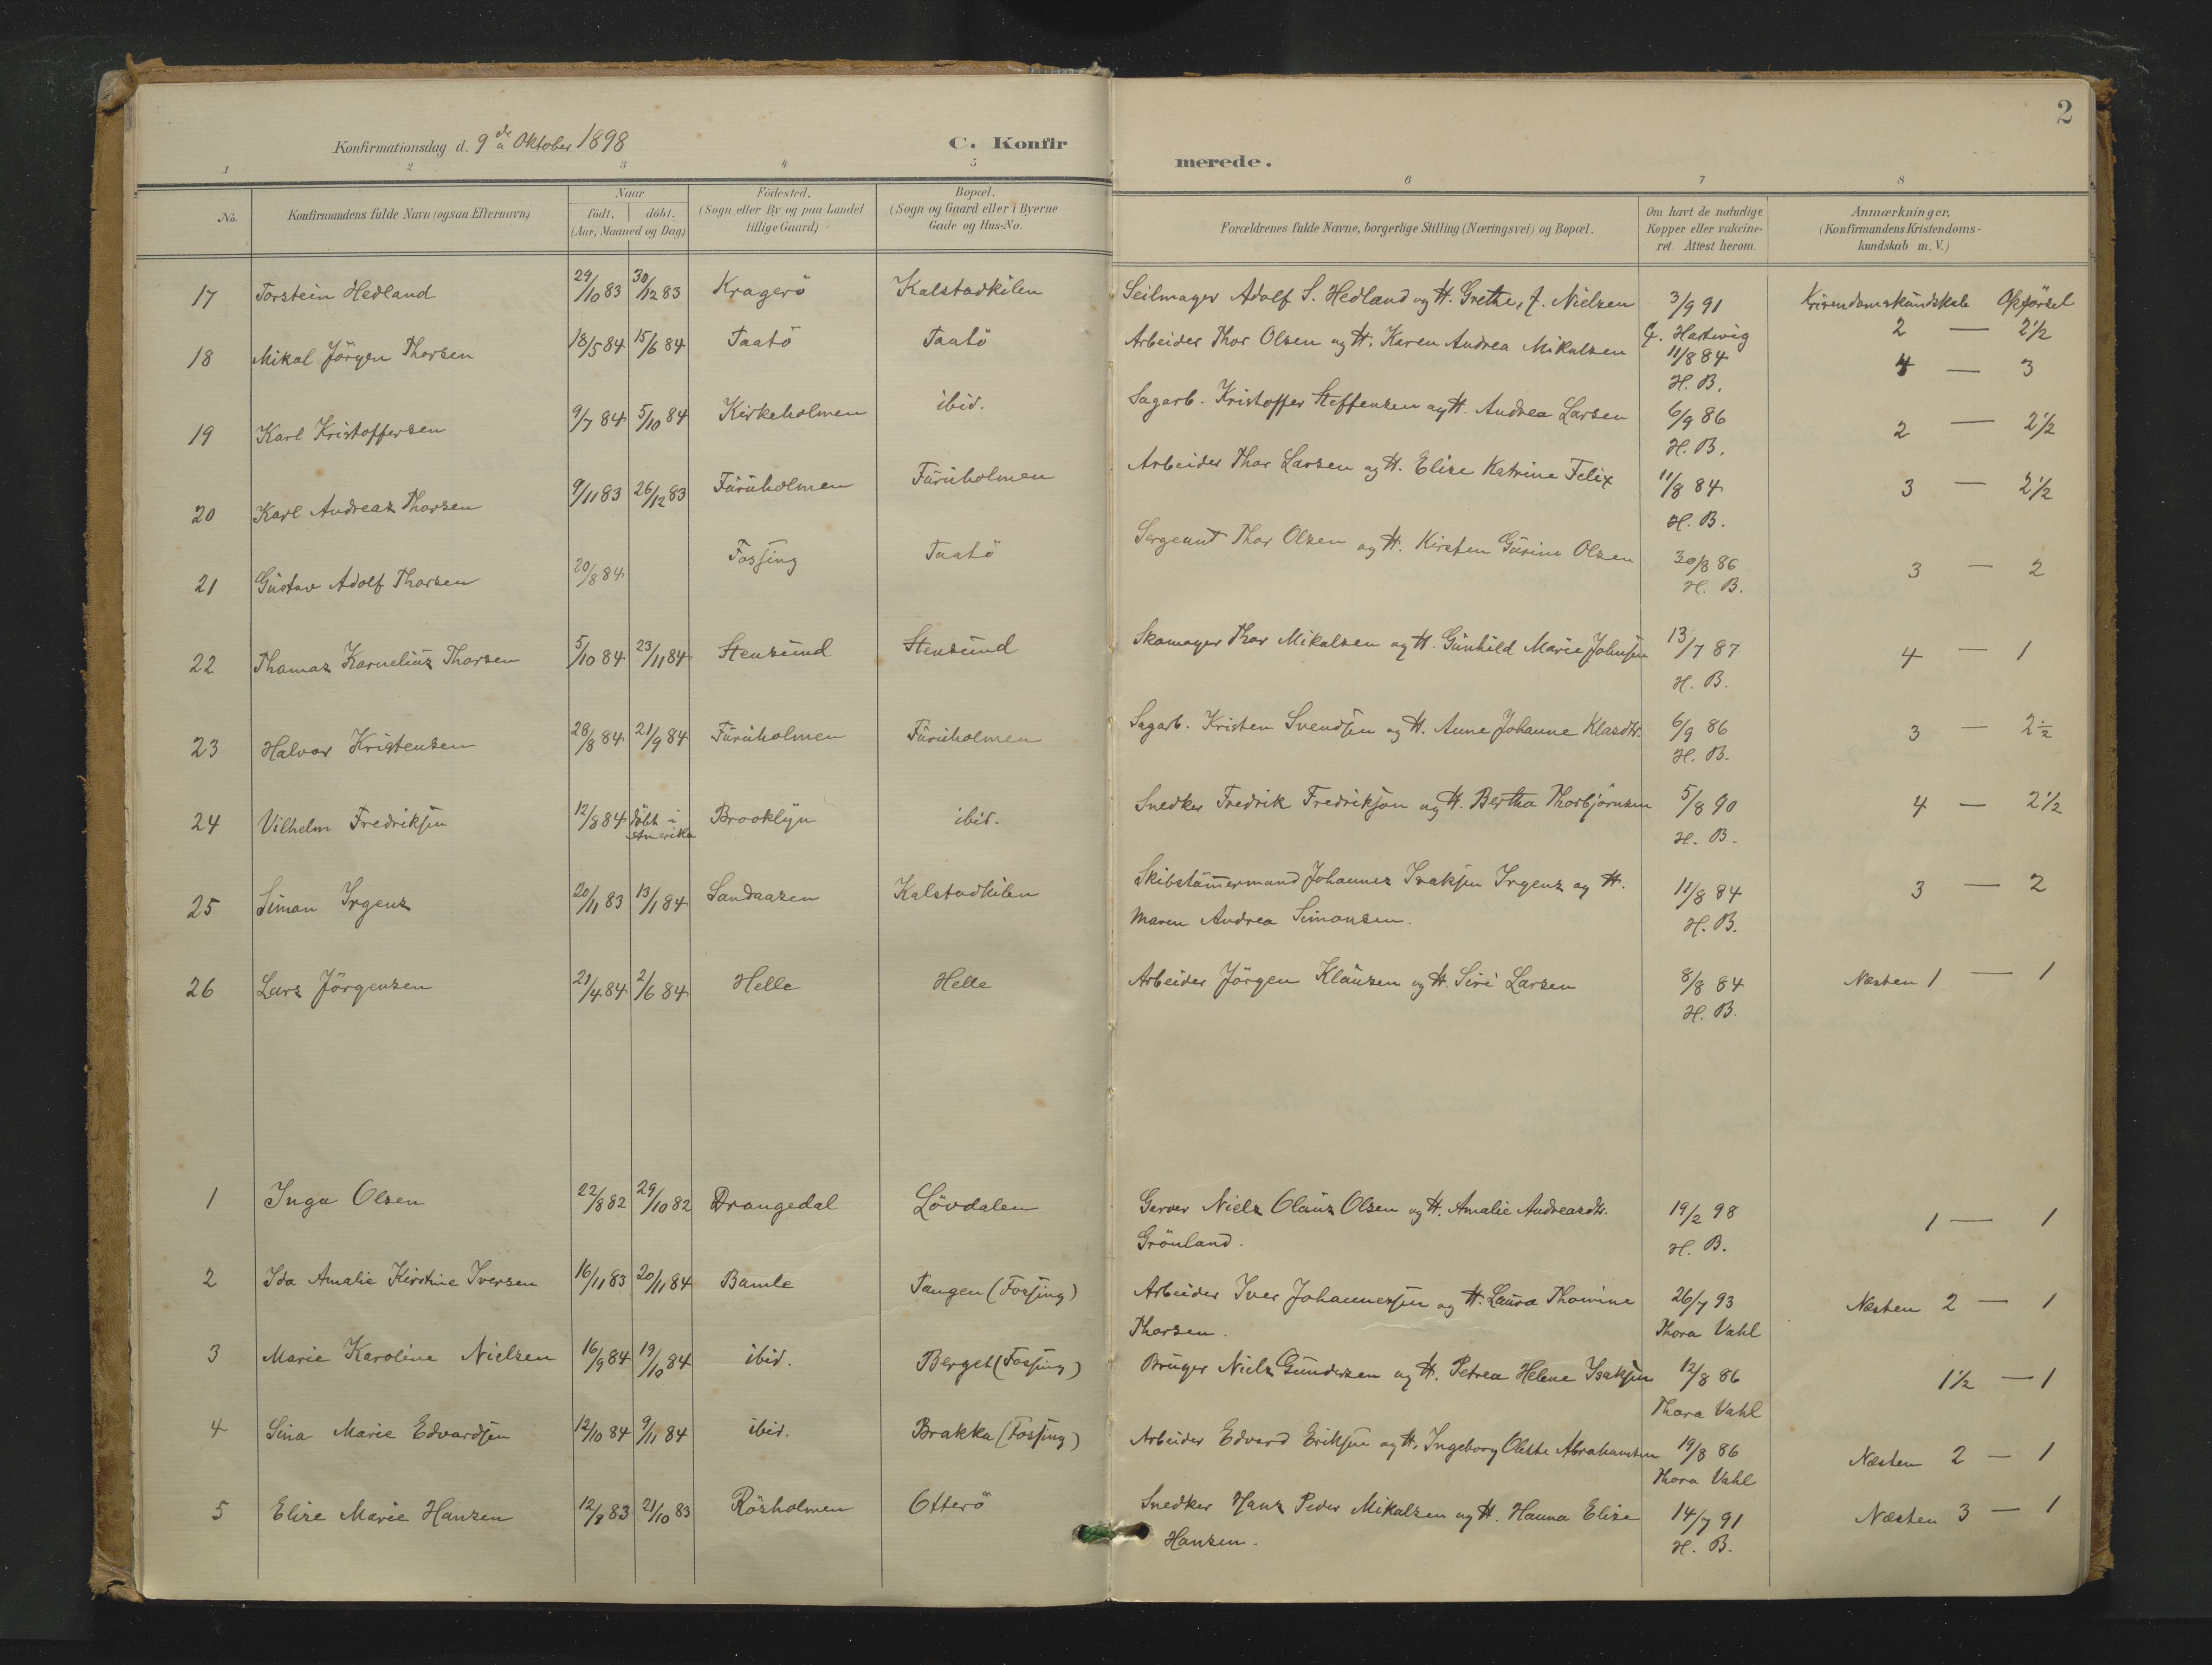 2
Konfirmationsdag d. 9de Oktober 1898
C. Konfirmerede.
1 2 3 4 5 6 7 8
No.
Konfirmandens fulde Navn (ogsaa Efternavn)
Naar
födt. döbt.
(Aar, Maaned og Dag)
Födested.
(Sogn eller By og paa Landet
tillige Gaard)
Bopæl.
(Sogn og Gaard eller i Byerne
Gade og Hus-No.
Forældrenes fulde Navne, borgerlige Stilling (Næringsvei) og Bopæl.
Om havt de naturlige
Kopper eller vakcine-
ret. Attest herom.
Anmærkninger,
(Konfirmandens Kristendoms-
kundskab m. V.)
17 Torstein Hedland 29/10 83 30/12 83 Kragerö Kalstadkilen Seilmager Adolf S. Hedland og H. Grethe, f. Nielsen 3/9 91 Krisendomskundskab Opförsel
G. Hartwig 2 — 2½
18 Mikal Jörgen Thorsen 18/5 84 15/6 84 Taatö Taatö Arbeider Thor Olsen og H. Karen Andrea Mikalsen 11/8 84 4 — 3
H. B.
19 Karl Kristoffersen 9/7 84 5/10 84 Kirkeholmen ibid. Sagarb. Kristoffer Steffensen og H. Andrea Larsen 6/9 86 2 — 2½
H. B.
20 Karl Andreas Thorsen 9/11 83 26/12 83 Furuholmen Furuholmen Arbeider Thor Larsen og H. Elise Katrine Felix 11/8 84 3 — 2½
H. B.
21 Gustav Adolf Thorsen 20/8 84 Fossing Taatö Sergeant Thor Olsen og H. Kirsten Gurine Olsen 30/8 86 3 — 2
H. B.
22 Thomas Kornelius Thorsen 5/10 84 23/11 84 Stensund Stensund Skomager Thor Mikalsen og H. Gunhild Marie Johnsen 13/7 87 4 — 1
H. B.
23 Halvor Kristensen 28/8 84 21/9 84 Furuholmen Furuholmen Sagarb. Kristen Svendsen og H. Anne Johanne Klasdtr. 6/9 86 3 — 2½
H. B.
24 Vilhelm Fredriksen 12/8 84 döbt i Brooklyn ibid. Snedker Fredrik Fredriksen og H. Bertha Thorbjörnsen 5/8 90 4 — 2½
Amerika H. B.
25 Simon Irgens 20/11 83 13/1 84 Sandaasen Kalstadkilen Skibstömmermand Johannes Isaksen Irgens og H. 11/8 84 3 — 2
Maren Andrea Simonsen. H. B.
26 Lars Jörgensen 21/4 84 2/6 84 Helle Helle Arbeider Jörgen Klausen og H. Siri Larsen 8/8 84 Næsten 1 — 1
H. B.
1 Inga Olsen 22/8 82 29/10 82 Drangedal Lövdalen Garver Niels Olaus Olsen og H. Amalie Andreasdtr. 19/2 98 1 — 1
Grönland. H. B.
2 Ida Amalie Kirstine Iversen 16/11 83 20/11 84 Bamle Tangen (Fossing) Arbeider Iver Johannessen og H. Laura Thomine 26/7 93 Næsten 2 — 1
Thorsen. Thora Vahl
3 Marie Karoline Nielsen 16/9 84 19/10 84 ibid. Berget (Fossing) Bruger Niels Gundersen og H. Petrea Helene Isaksen 12/8 86 1½ — 1
Thora Vahl
4 Sina Marie Edvardsen 12/10 84 9/11 84 ibid. Brakka (Fossing) Arbeider Edvard Eriksen og H. Ingeborg Abrahamsen 19/8 86 Næsten 2 — 1
Thora Vahl
5 Elise Marie Hansen 12/8 83 21/10 83 Rösholmen Otterö Snedker Hans Peder Mikalsen og H. Hanna Elise 14/7 91 Næsten 3 — 1
Hansen. H. B.